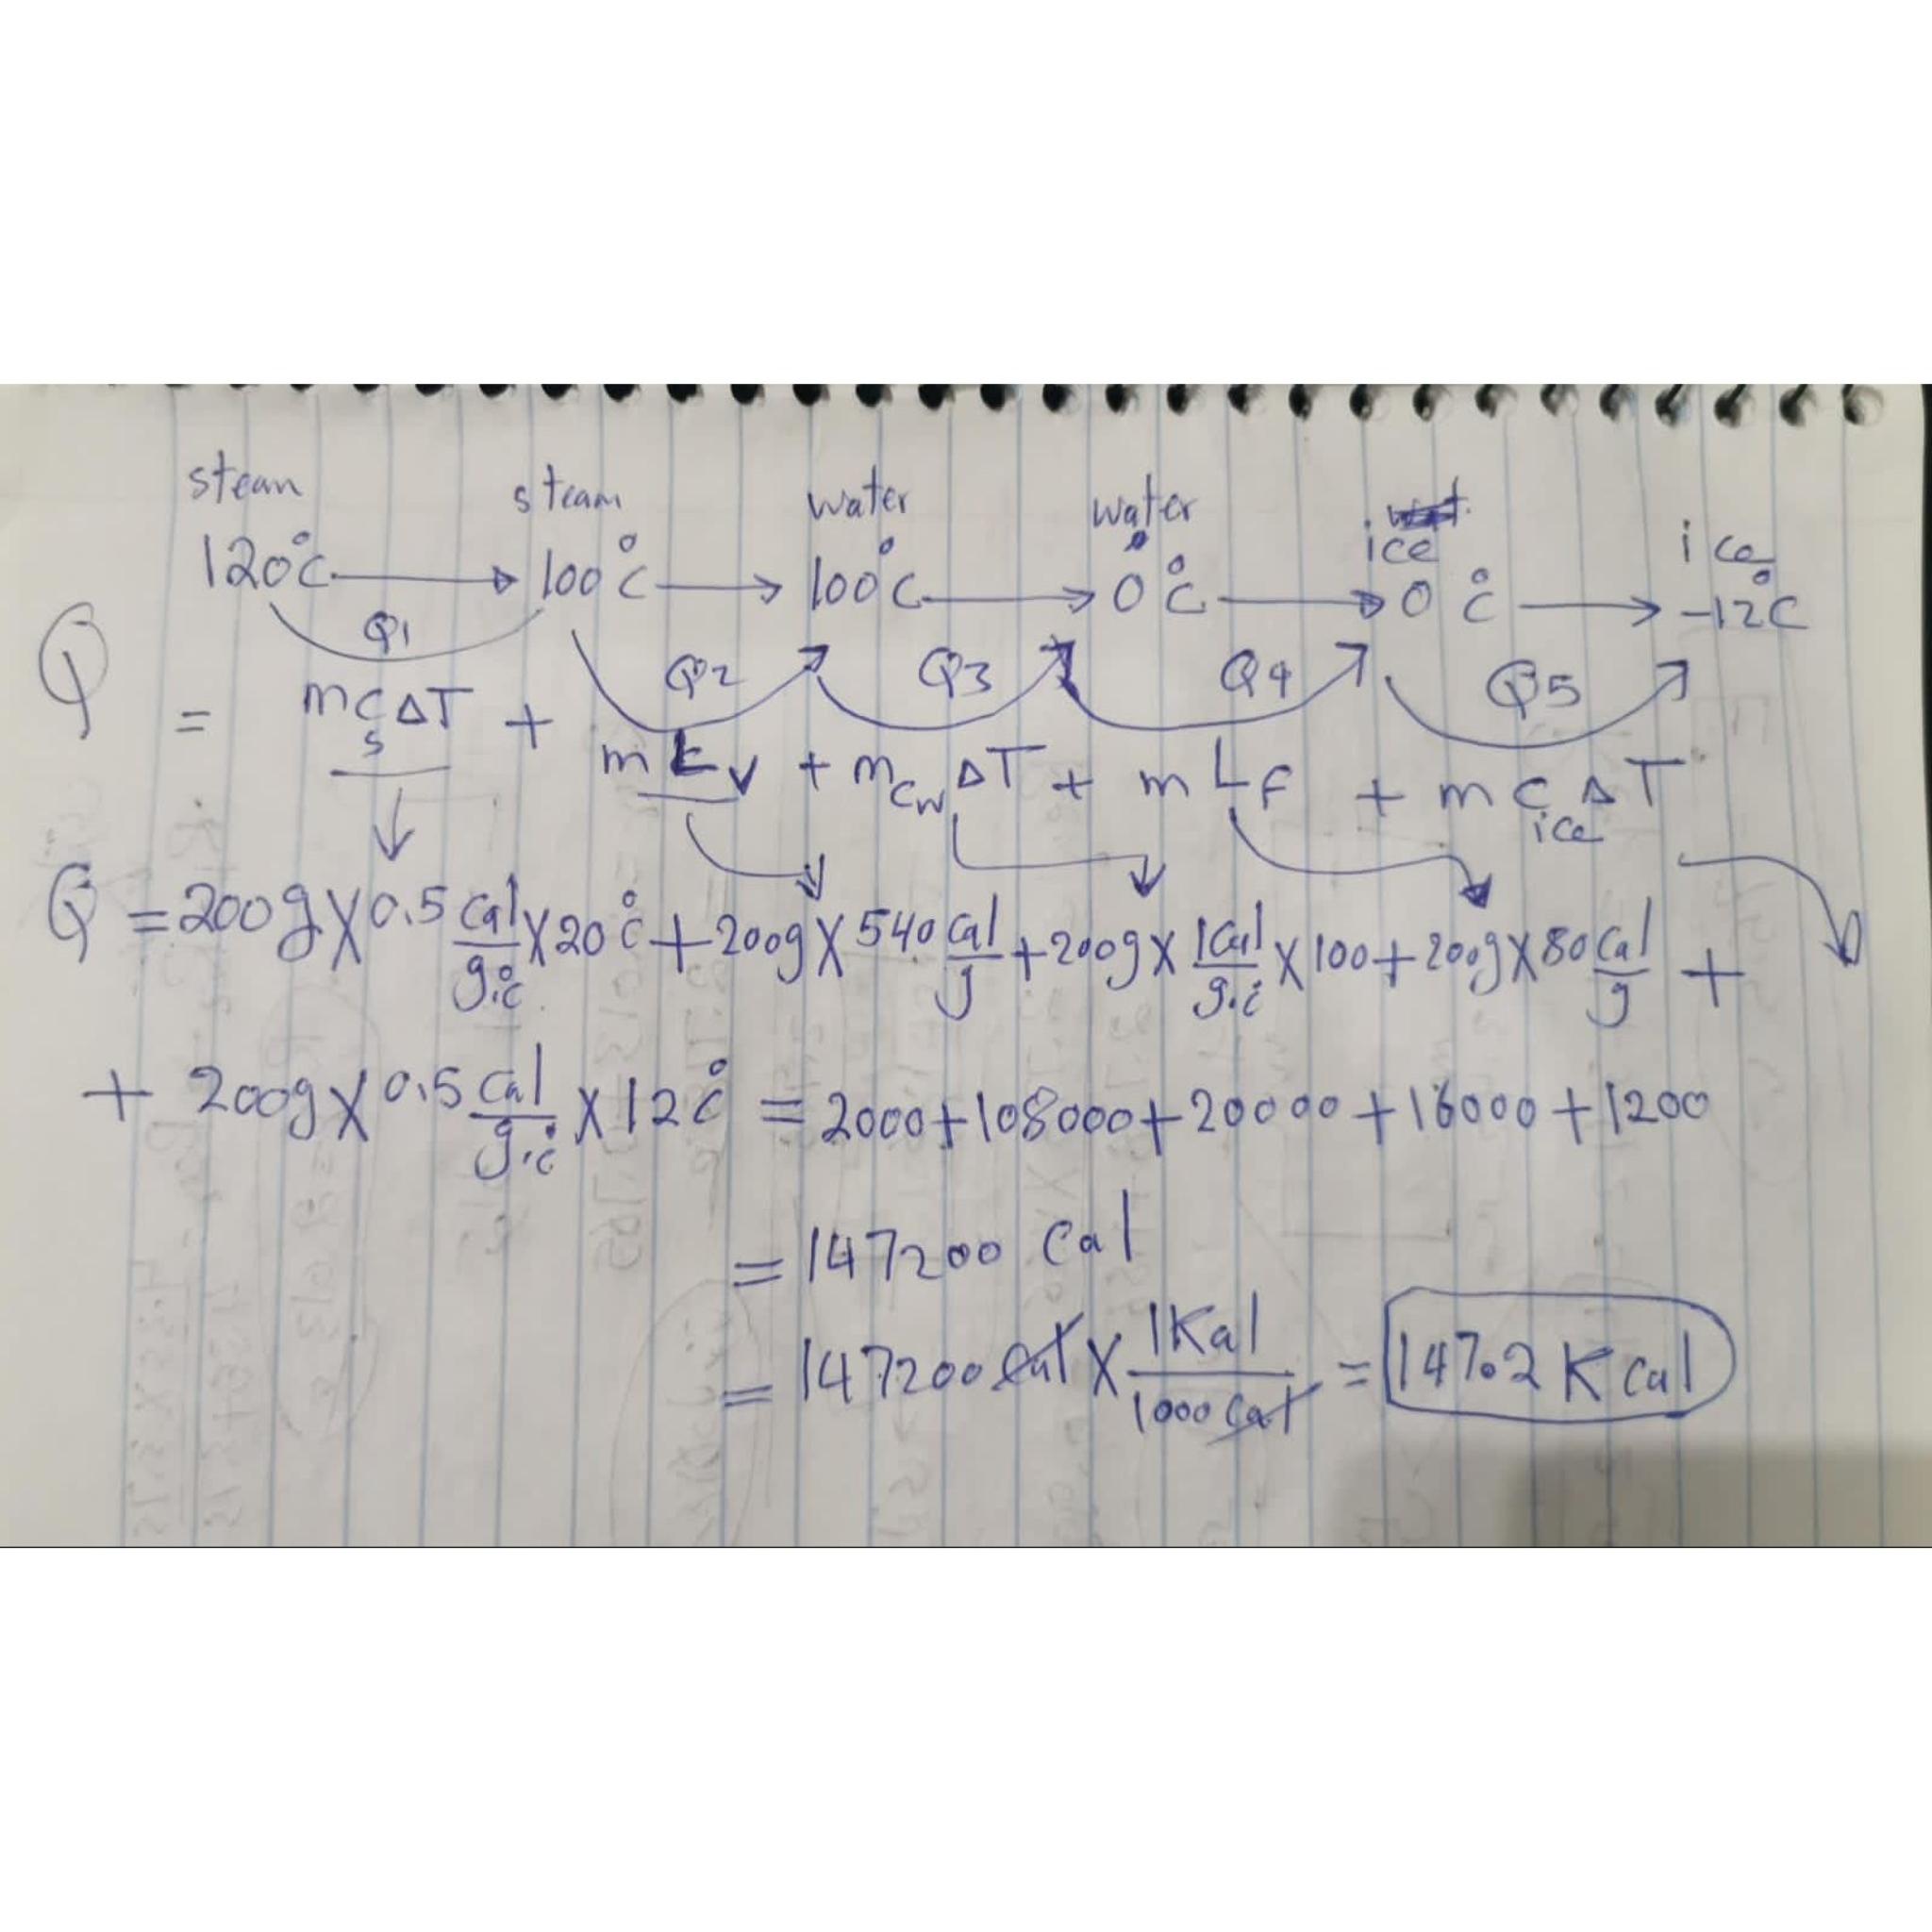 steam steam water water ice ice
120°C → 100°C → 100°C → 0°C → 0°C → -12°C
Q1 Q2 Q3 Q4 Q5
Q = mCsΔT + mLv + mCwΔT + mLF + mCiceΔT
Q = 200g X 0.5 Cal/g.°C X 20°C + 200g X 540 Cal/g + 200g X 1Cal/g.°C X 100 + 200g X 80 Cal/g +
+ 200g X 0.5 Cal/g.°C X 12°C = 2000 + 108000 + 20000 + 16000 + 1200
= 147200 Cal
= 147200 Cal X 1Kal/1000 Cal = 147.2 KCal